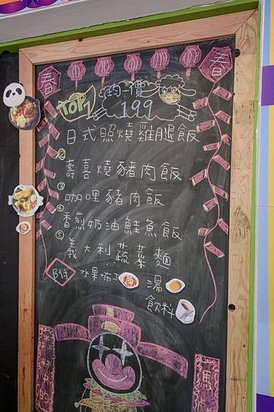 春
春
TOP1
199
日式照燒雞腿飯
② 壽喜燒豬肉飯
③ 咖哩豬肉飯
④ 香煎奶油鮭魚飯
⑤ 義大利蔬菜麵
水果
湯
飲料